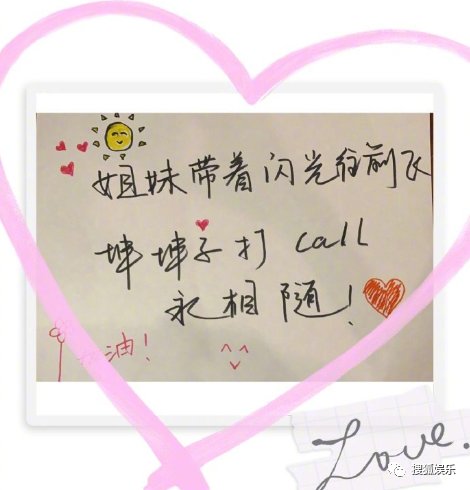 姐妹带着闪光往前飞
坤坤子打 call
永相随!
加油!
Love.
搜狐娱乐